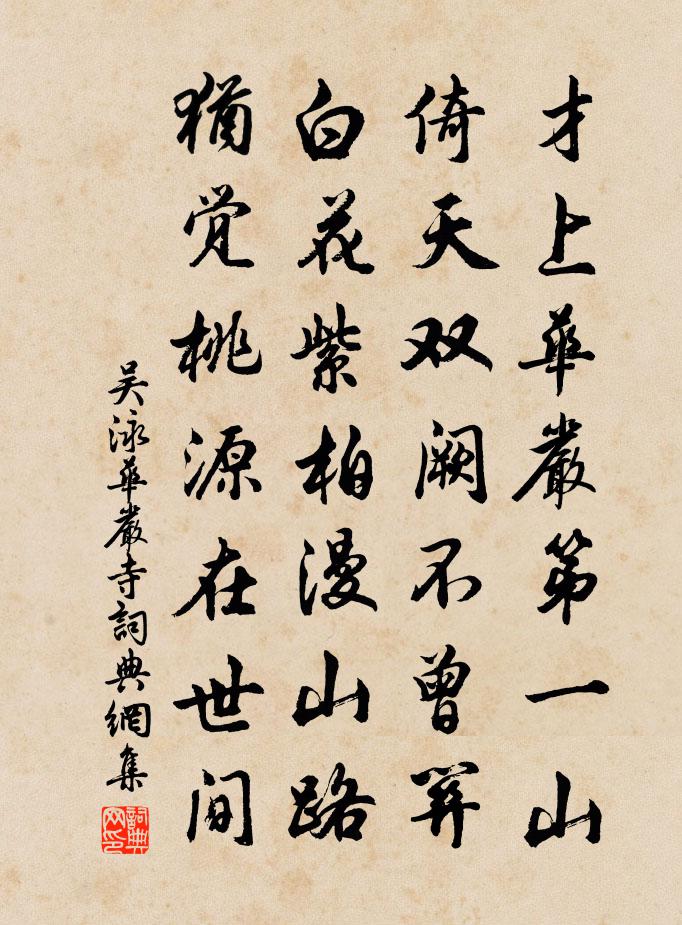 才上華嚴第一山
倚天双闕不曾關
白花紫柏漫山路
猶觉桃源在世间
吴泳華嚴寺詞典網集
詞典网印